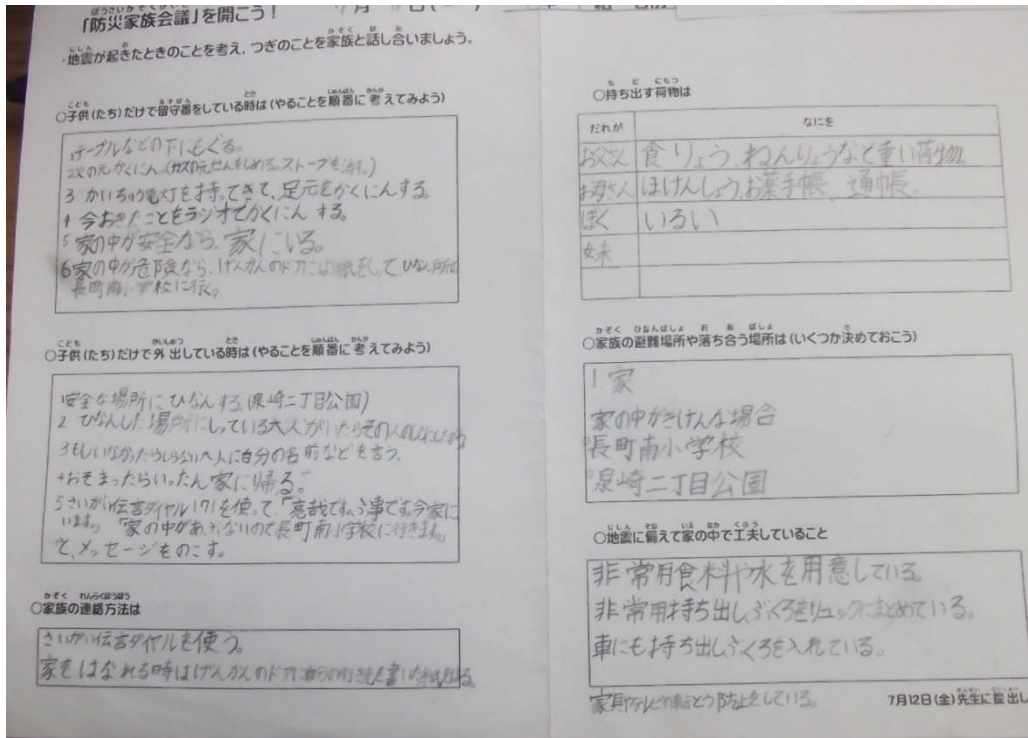 「防災家族会議」を開こう！
・地震が起きたときのことを考え，つぎのことを家族と話し合いましょう。
○子供(たち)だけで留守番をしている時は(やることを順番に考えてみよう)
1テーブルなどの下にもぐる。
2火の元かくにん(ガスの元せんをしめる。ストーブを消す。)
3 かいちゅう電灯を持ってきて、足元をかくにんする。
4 今おきたことをラジオでかくにんする。
5 家の中が安全なら、家にいる。
6家の中が危険なら、げんかんのドアにはり紙をして、ひなん所の
長町南小学校に行く。
○子供(たち)だけで外出している時は(やることを順番に考えてみよう)
1安全な場所にひなんする(泉崎二丁目公園)
2 ひなんした場所にしっている大人がいたらその人の
3もしいなかったらしらない人に自分の名前などを言う。
4おそまったらいったん家に帰る。
5さいがい伝言ダイヤル171を使って、「亮哉です。ぶ事です。今家に
います。」「家の中があぶないので長町南小学校に行きます。」
と、メッセージをのこす。
○家族の連絡方法は
さいがい伝言ダイヤルを使う。
家をはなれる時はげんかんのドアに自分の行先を書いた紙をはる。
○持ち出す荷物は
だれが なにを
お父さん 食りょう、ねんりょうなど重い荷物。
お母さん ほけんしょう、お薬手帳、通帳、
ぼく いるい
妹
○家族の避難場所や落ち合う場所は(いくつか決めておこう)
1 家
家の中がきけんな場合
長町南小学校
泉崎二丁目公園
○地震に備えて家の中で工夫していること
非常用食料や水を用意している。
非常用持ち出しぶくろをリュックにまとめている。
車にも持ち出しぶくろを入れている。
家具やテレビの転とう防止をしている。
7月12日(金)先生に提出し